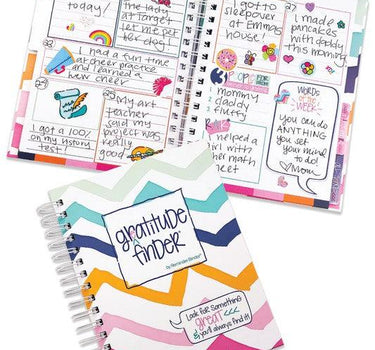 today!
lady at
target
let me pet
her dog!
got to
sleepover
at Emmas
house!
I made
pancakes
with daddy
this morning
I had a fun time
at cheer practice
and learned a
new cheer!
I got a 100%
on my history
test
my art
teacher
said my
project was
really
good
mommy
daddy
I helped a
girl with
her math
sheet
WORDS
of the
WEEK:
you can do
ANYTHING
you set
your mind
to do!
♡ Mom
gratitude
finder®
by Reminder Binder®
Look for something
GREAT
& you'll always find it!